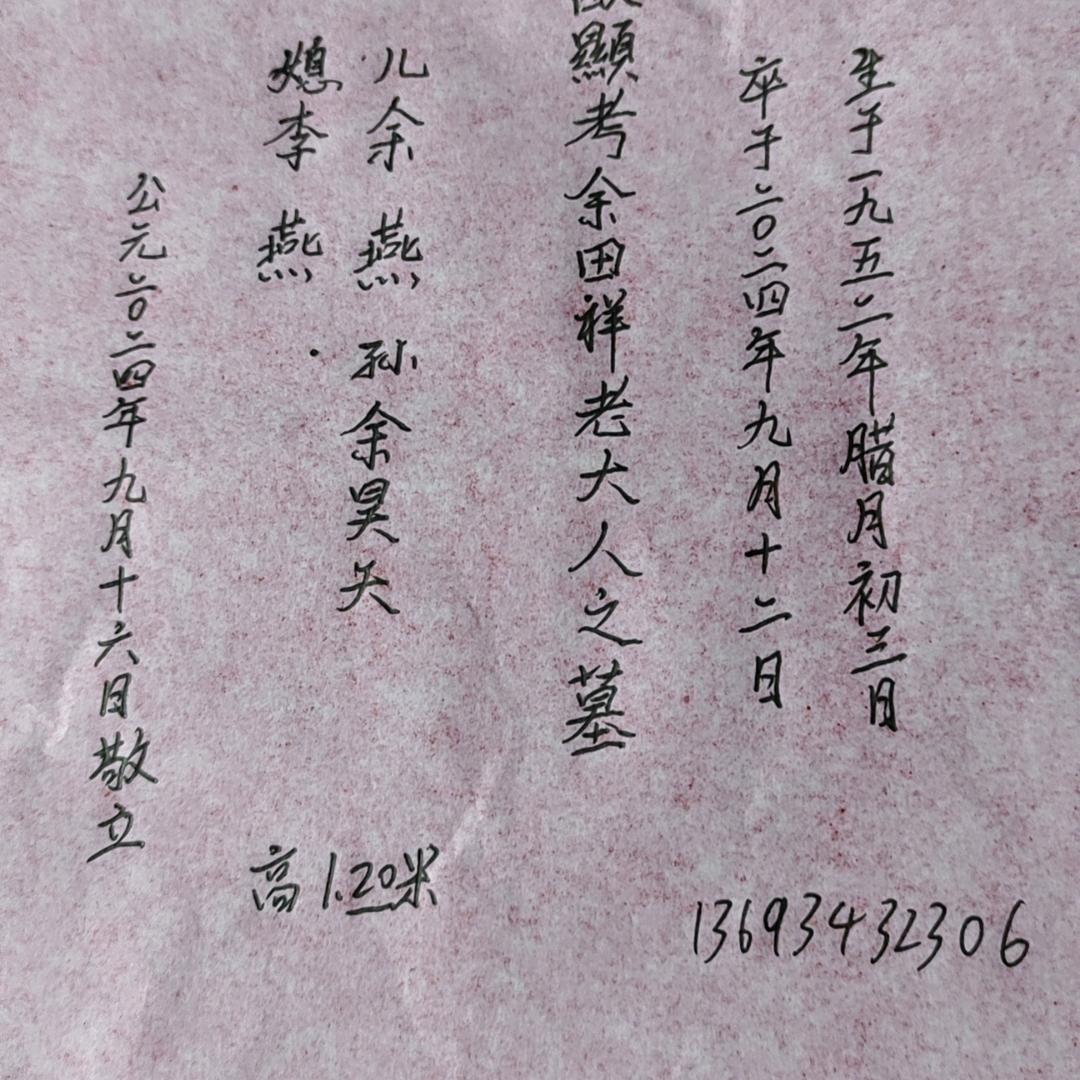 生于一九五二年腊月初三日
卒于二〇二四年九月十二日
顯考余田祥老大人之墓
儿余燕 孙余昊矢
媳李燕
公元二〇二四年九月十六日敬立
高1.20米
13693432306